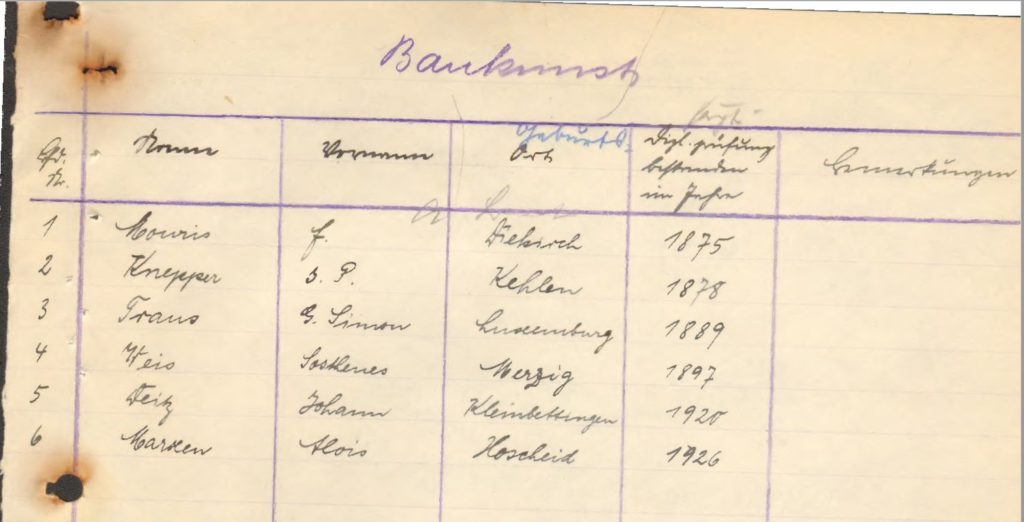 Baukunst
Geburts-
Name Vorname Ort Dipl. prüfung bestanden im Jahre Bemerkungen
1 Mouris f. Diekirch 1875
2 Knepper J. P. Kehlen 1878
3 Traus G. Simon Luxemburg 1889
4 Weis Sosthenes Merzig 1897
5 Deitz Johann Kleinbettingen 1920
6 Marxen Alois Hoscheid 1926